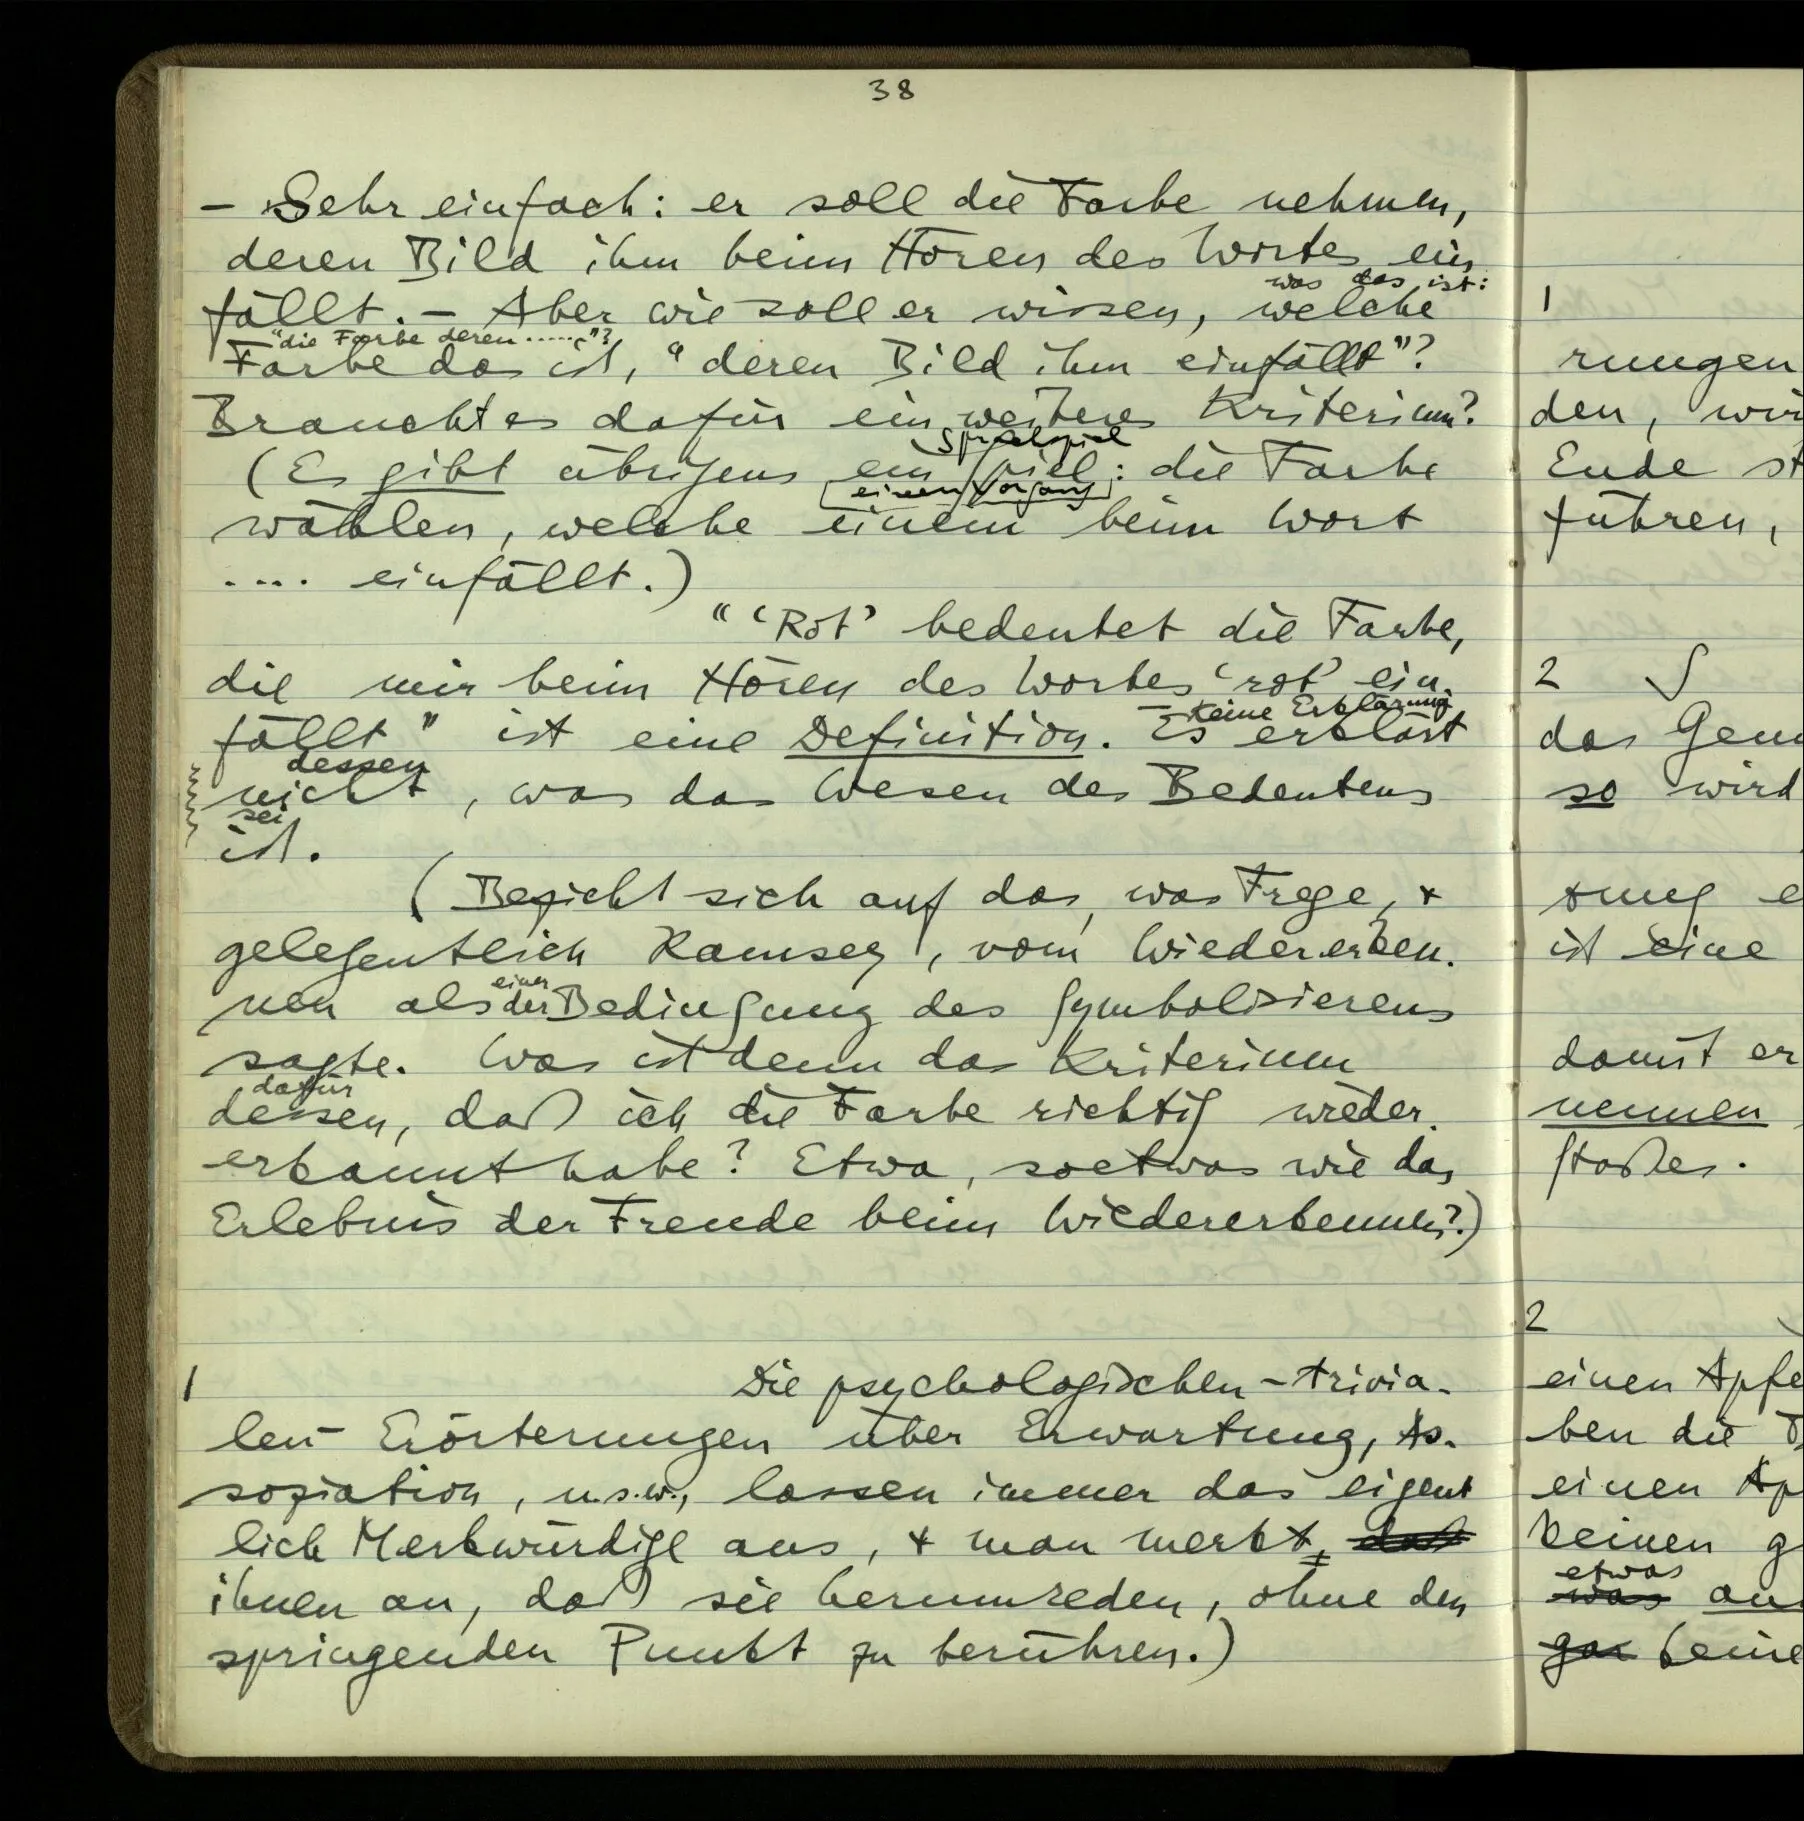 38
– Sehr einfach: er soll die Farbe nehmen,
deren Bild ihm beim Hören des Wortes ein
was das ist:
fällt. – Aber wie soll er wissen, welche
"die Farbe deren ......"?
Farbe das ist, "deren Bild ihm einfällt"?
Braucht es dafür ein weiteres Kriterium?
Sprachspiel
(Es gibt übrigens ein Spiel: die Farbe
einen Vorgang
wählen, welche einem beim Wort
.... einfällt.)
"'Rot' bedeutet die Farbe,
die mir beim Hören des Wortes 'rot' ein-
keine Erklärung
fällt" ist eine Definition. Es erklärt
dessen
nicht, was das Wesen des Bedeutens
sei
ist.
(Bezieht sich auf das, was Frege, +
gelegentlich Ramsey, vom Wiedererken-
einer
nen als der Bedingung des Symbolisierens
sagte. Was ist denn das Kriterium
dafür
dessen, daß ich die Farbe richtig wieder-
erkannt habe? Etwa, soetwas wie das
Erlebnis der Freude beim Wiedererkennen?)
1 Die psychologischen – trivia-
len – Erörterungen über Erwartung, As-
soziation, u.s.w., lassen immer das eigent
lich Merkwürdige aus, + man merkt daß
ihnen an, daß sie herumreden, ohne den
springenden Punkt zu berühren.)
1
rungen
den, wir
Ende
führen,
2
das
so wird
ist eine
damit er
nennen
Stoßes.
2
einen Apfe
ben die
einen Ap
keinen g
etwas
was an
gar keine